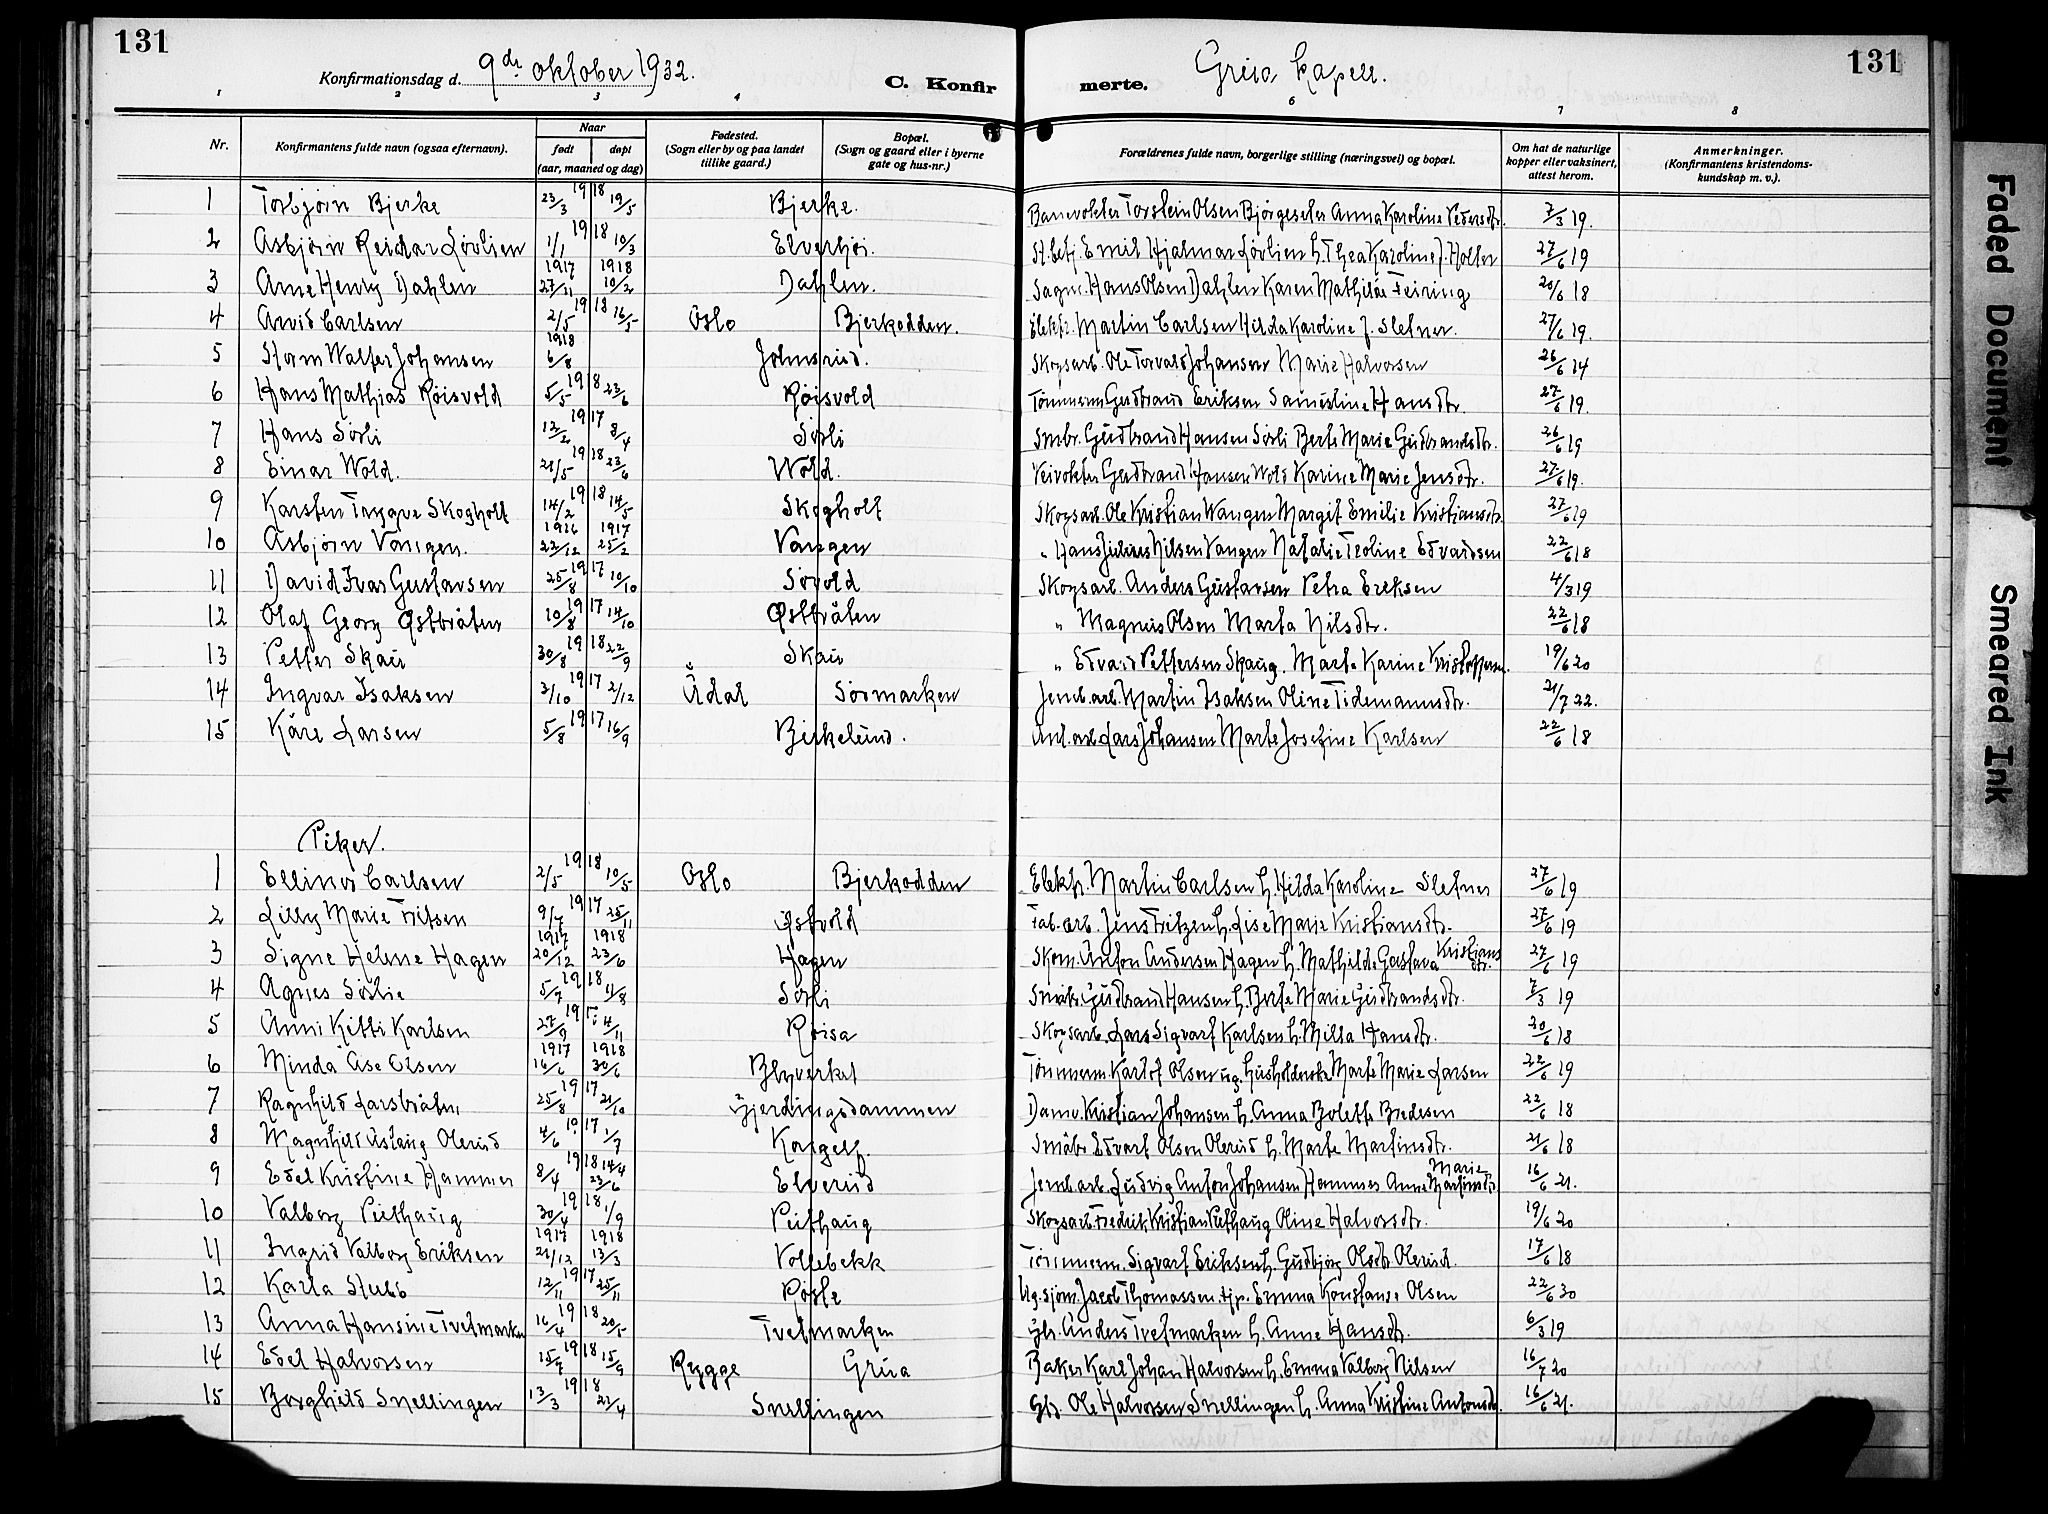 131
Konfirmationsdag d. 9de oktober 1932. C. Konfirmerte. Grua kapell. 131
1 2 3 4 6 7 8
Nr. Konfirmantens fulde navn (ogsaa efternavn). Naar født døpt (aar, maaned og dag) Fødested. (Sogn eller by og paa landet tillike gaard.) Bopæl. (Sogn og gaard eller i byerne gate og hus-nr.) Forældrenes fulde navn, borgerlige stilling (næringsvei) og bopæl. Om hat de naturlige kopper eller vaksinert, attest herom. Anmerkninger. (Konfirmantens kristendoms-kundskap m. v.).
1 Torbjørn Bjerke 23/3 1918 19/5 Bjerke. Banevokter Torstein Olsen Bjørgeseter Anna Karoline Pedersdtr. 7/3 19.
2 Asbjørn Reidar Løvlien 1/1 1918 10/3 St.betj. Emil Hjalmar Løvlien h. Thea Karoline J. Holter 27/6 19
3 Arne Henry Dahlen 1917 27/11 1918 10/2 Dahlen. Sagm. Hans Olsen Dahlen Karen Mathilde Feiring 20/6 18
4 Arvid Carlsen 2/5 1918 16/5 Oslo Bjerkodden. Elektr. Martin Carlsen Hilda Karoline J. Sletner. 27/6 19.
5 Storm Walter Johansen 1918 6/8 Johnsrud. Skogsarb. Ole Torvald Johansen Marie Halvorsen 26/6 14
6 Hans Mathias Røisvold 5/5 1918 23/6 Røisvold Tømmerm. Gudbrand Eriksen Samueline Hansdtr. 27/6 19.
7 Hans Sørli 12/2 1917 8/4 Sørli Smbr. Gudbrand Hansen Sørli Berte Marie Gudbrandsdtr. 26/6 19
8 Einar Wold. 21/5 1918 23/6 Wold. Veivokter Gudbrand Hansen Wold Karine Marie Jensdtr. 27/6 19.
9 Karsten Trygve Skogholt 14/2 1918 14/5 Skogholt Skogsarb. Ole Kristian Wangen Margit Emilie Kristiansdtr. 27/6 19
10 Asbjørn Vangen. 1916 22/12 1917 25/2 Vangen " Hans Julius Nilsen Vangen Natalie Teoline Edvardsen 22/6 18
11 David Ivar Gustavsen 25/8 1917 10/10 Sovold Skogsarb. Anders Gustavsen Petra Eriksen 4/3 19
12 Olaf Georg Østbråten 10/8 1917 14/10 Østbråten " Magnus Olsen Marta Nilsdtr. 22/6 18
13 Petter Skau 30/8 1918 22/9 Skau " Edvard Pettersen Skaug. Marte Karine Kristoffersen. 19/6 20
14 Ingvar Isaksen 3/10 1917 2/12 Ådal Sørmarken Jernb.arb. Martin Isaksen Oline Tidemannsdtr. 21/7 22.
15 Kåre Larsen 5/8 1917 16/9 Birkelund. Anl. arb. Lars Johansen Marte Josefine Karlsen 22/6 18
Piker.
1 Ellinor Carlsen 2/5 1918 10/5 Oslo Bjerkodden Elektr. Martin Carlsen h. Hilda Karoline Sletner 27/6 19
2 Lilly Marie Fritsen 9/7 1917 25/11 Østvold Fab. arb. Jens Fritzen h. Lise Marie Kristiansdtr. 27/6 19
3 Signe Helene Hagen 1917 20/12 1918 23/6 Hagen Skom. Anton Andersen Hagen h. Mathilde Gustava Kristiansdtr. 27/6 19
4 Agnes Sørlie 5/7 1918 11/8 Sørli Småbr. Gudbrand Hansen h. Berte Marie Gudbrandsdtr. 7/3 19
5 Anni Kitti Karlsen 27/9 4/11 Røisa Skogsarb. Lars Sigvart Karlsen h. Milla Hansdtr. 20/6 18
6 Minda Åse Olsen 1917 16/6 1918 30/6 Blyverket Tømmerm. Karlot Olsen ug. husholderske Marte Marie Larsen 22/6 19
7 Ragnhild Larsbråten 25/8 1917 21/10 Gjerdingsdammen Damv. Kristian Johansen h. Anna Bolette Bredesen 22/6 18
8 Magnhild Aslaug Olerud 4/6 1917 1/7 Småbr. Edvart Olsen Olerud h. Marte Martinsdtr. 21/6 18
9 Edel Kristine Hammer 8/4 1918 14/4 23/6 Elverud Jernb.arb. Ludvig Anton Johansen Hammer Anne Marie Martinsdtr. 16/6 21.
10 Valborg Puthaug 30/4 1918 1/9 Puthaug Skogsarb. Fredrik Kristian Puthaug Oline Halvorsdtr. 19/6 20
11 Ingrid Valborg Eriksen 1917 21/12 1918 13/3 Vollebekk Tømmerm. Sigvart Eriksen h. Gudbjørg Olsdtr. Olerud. 17/6 18
12 Karla Stubb 12/11 1917 25/11 Ug. sjøm. Jacob Thomassen. tjp. Emma Konstanse Olsen 22/6 30
13 Anna Hansine Tvetmarken 16/4 1918 20/5 Tvetmarken Gbr. Anders Tvetmarken h. Anne Hansdtr. 6/3 19
14 Edel Halvorsen 15/7 1918 15/9 Rygge Grua Baker Karl Johan Halvorsen h. Emma Valborg Nilsen 16/7 20
15 Borghild Snellingen 13/3 1918 21/4 Snellingen Gbr. Ole Halvorsen Snellingen h. Anna Kristine Antonsdtr. 16/6 21.
Faded Document
Smeared Ink